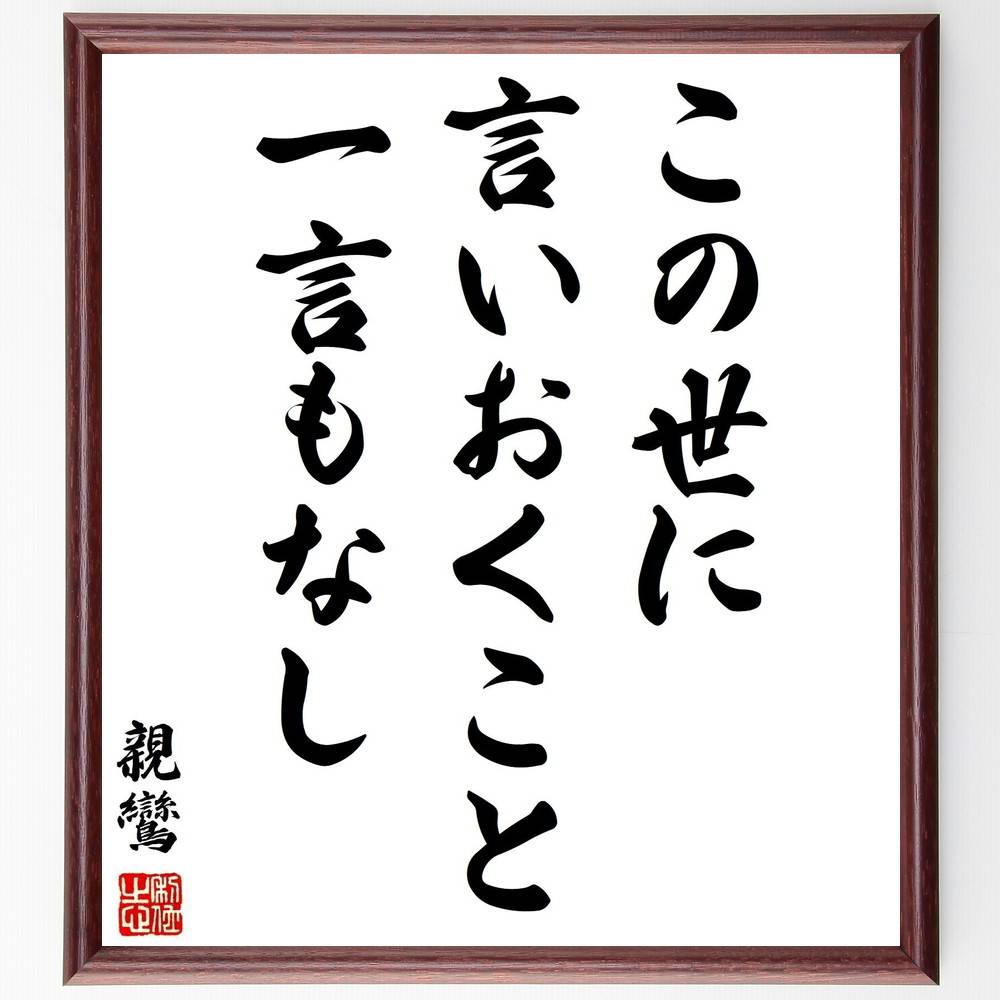 この世に
言いおくこと
一言もなし
親鸞